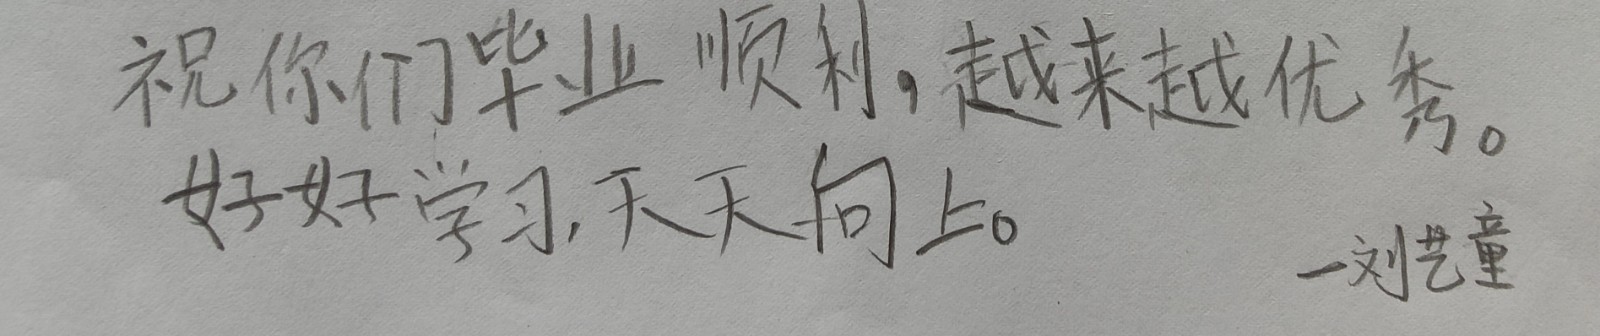 祝你们毕业顺利，越来越优秀。
好好学习，天天向上。
—刘艺童